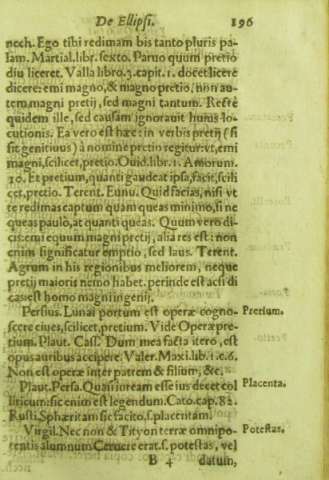 De Ellipsi. 196
nech. Ego tibi redimam bis tanto pluris pa-
lam. Martial. libr. sexto. Paruo quum pretio
diu liceret. Valla libro. 3. capit. 1. docet licere
dicere: emi magno, & magno pretio: non au-
tem magni pretij, sed magni tantum. Recte
quidem ille, sed causam ignorauit huius lo-
cutionis. Ea vero est hæc: in verbis pretij (si
sit genitiuus) à nomine pretio regitur: vt, emi
magni, scilicet, pretio. Ouid. libr. 1. Amorum.
10. Et pretium, quanti gaudeat ipsa, facit, scili
cet, pretio. Terent. Eunu. Quid facias, nisi vt
te redimas captum quam queas minimo, si ne
queas paulò, at quanti queas. Quum vero di-
cis: emi equum magni pretij, alia res est: non
enim significatur emptio, sed laus. Terent.
Agrum in his regionibus meliorem, neque
pretij maioris nemo habet. perinde est acsi di
cas: est homo magni ingenij.
Persius. Lunai portum est operæ cogno- Pretium.
scere ciues, scilicet, pretium. Vide Operæpre-
tium. Plaut. Cass. Dum mea facta itero, est
opus auribus accipere. Valer. Maxi. lib. 1. c. 6.
Non est operæ inter patrem & filium, &c.
Plaut. Persa. Quasi ioream esse ius decet col Placenta.
liticum: sic enim est legendum. Cato. cap. 82.
Rusti. Sphæritam sic facito, s. placentam.
Virgil. Nec non & Tityon terræ omnipo- Potestas.
rentis alumnum Cernere erat. s. potestas, vel
B 4 datum,